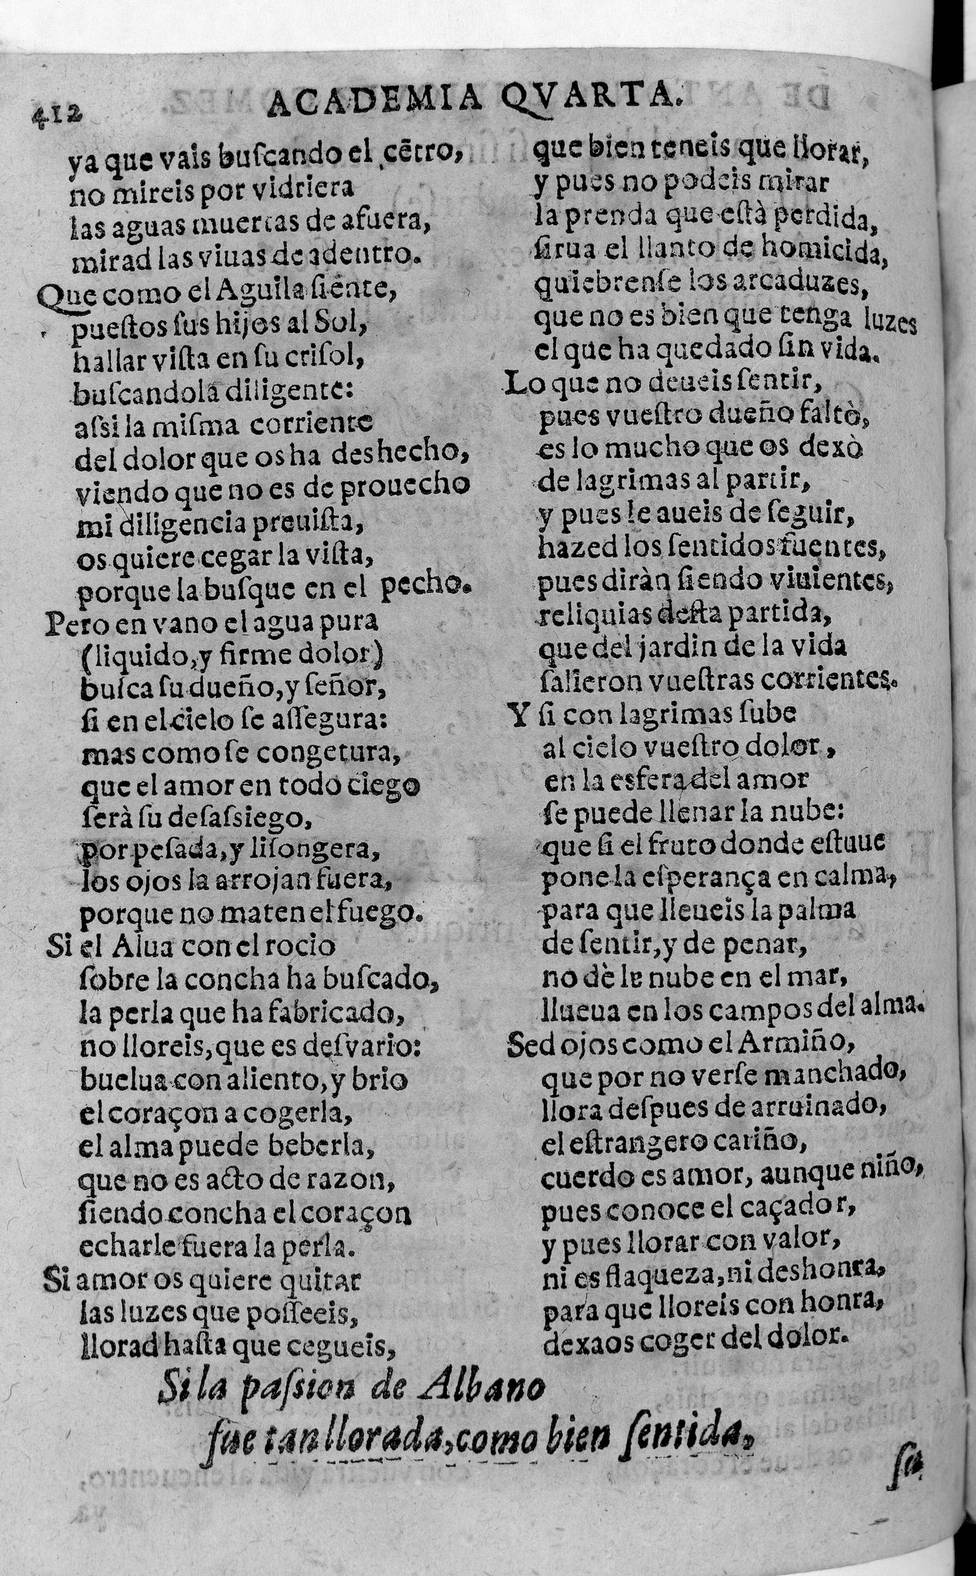 412
ACADEMIA QVARTA.
ya que vais buſcando el cẽtro,
no mireis por vidriera
las aguas muertas de afuera,
mirad las viuas de adentro.
Que como el Aguila ſiẽnte,
pueſtos ſus hijos al Sol,
hallar viſta en ſu criſol,
buſcandola diligente:
aſsi la miſma corriente
del dolor que os ha deshecho,
viendo que no es de prouecho
mi diligencia preuiſta,
os quiere cegar la viſta,
porque la buſque en el pecho.
Pero en vano el agua pura
(liquido, y firme dolor)
buſca ſu dueño, y ſeñor,
ſi en el cielo ſe aſſegura:
mas como ſe congetura,
que el amor en todo ciego
ſerà ſu deſaſsiego,
por peſada, y liſongera,
los ojos la arrojan fuera,
porque no maten el fuego.
Si el Alua con el rocio
ſobre la concha ha buſcado,
la perla que ha fabricado,
no lloreis, que es deſvario:
buelua con aliento, y brio
el coraçon a cogerla,
el alma puede beberla,
que no es acto de razon,
ſiendo concha el coraçon
echarle fuera la perla.
Si amor os quiere quitar
las luzes que poſſeeis,
llorad haſta que cegueis,
que bien teneis que llorar,
y pues no podeis mirar
la prenda que eſtà perdida,
ſirua el llanto de homicida,
quiebrenſe los arcaduzes,
que no es bien que tenga luzes
el que ha quedado ſin vida.
Lo que no deueis ſentir,
pues vueſtro dueño faltò,
es lo mucho que os dexò
de lagrimas al partir,
y pues le aueis de ſeguir,
hazed los ſentidos fuentes,
pues diràn ſiendo viuientes,
reliquias deſta partida,
que del jardin de la vida
ſalieron vueſtras corrientes.
Y ſi con lagrimas ſube
al cielo vueſtro dolor,
en la esfera del amor
ſe puede llenar la nube:
que ſi el fruto donde eſtuue
pone la eſperança en calma,
para que lleueis la palma
de ſentir, y de penar,
no dè la nube en el mar,
llueua en los campos del alma.
Sed ojos como el Armiño,
que por no verſe manchado,
llora deſpues de arruinado,
el eſtrangero cariño,
cuerdo es amor, aunque niño,
pues conoce el caçador,
y pues llorar con valor,
ni es flaqueza, ni deshonra,
para que lloreis con honra,
dexaos coger del dolor.
Si la paſsion de Albano
fue tan llorada, como bien ſentida,
ſu